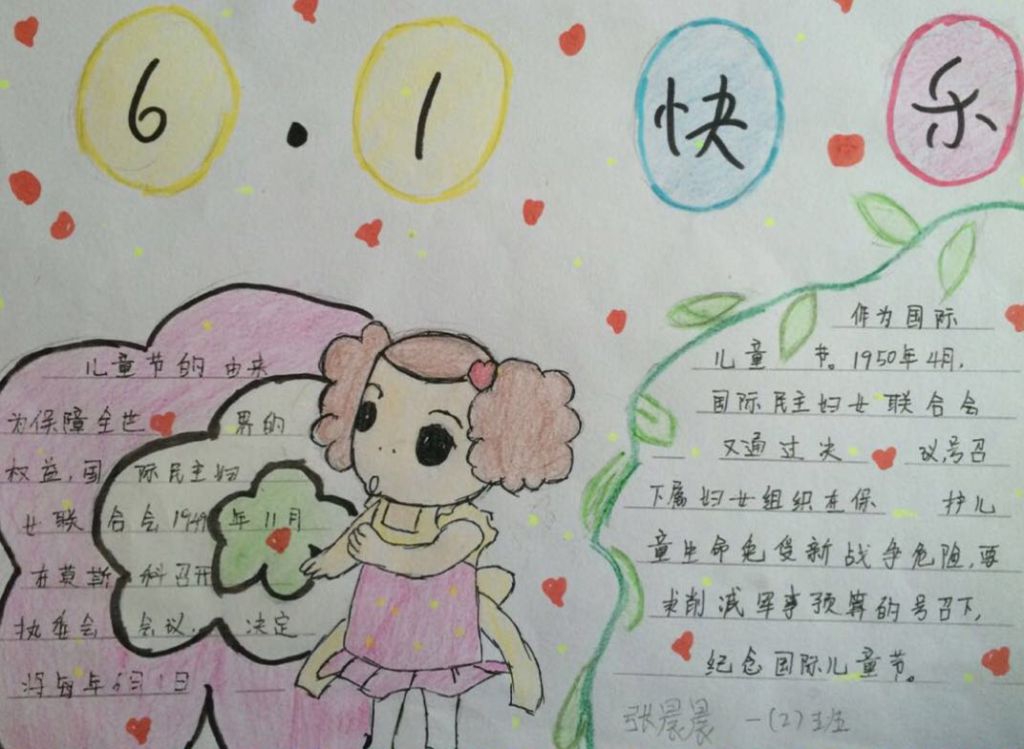 6·1快乐
儿童节的由来
为保障全世界的
权益,国际民主妇
女联合会1949年11月
在莫斯科召开
执委会会议,决定
将每年6月1日
作为国际
儿童节。1950年4月,
国际民主妇女联合会
又通过决议,号召
下属妇女组织在保护儿
童生命免受新战争危阻,要
求削减军事预算的号召下,
纪念国际儿童节。
张晨晨 一(2)班